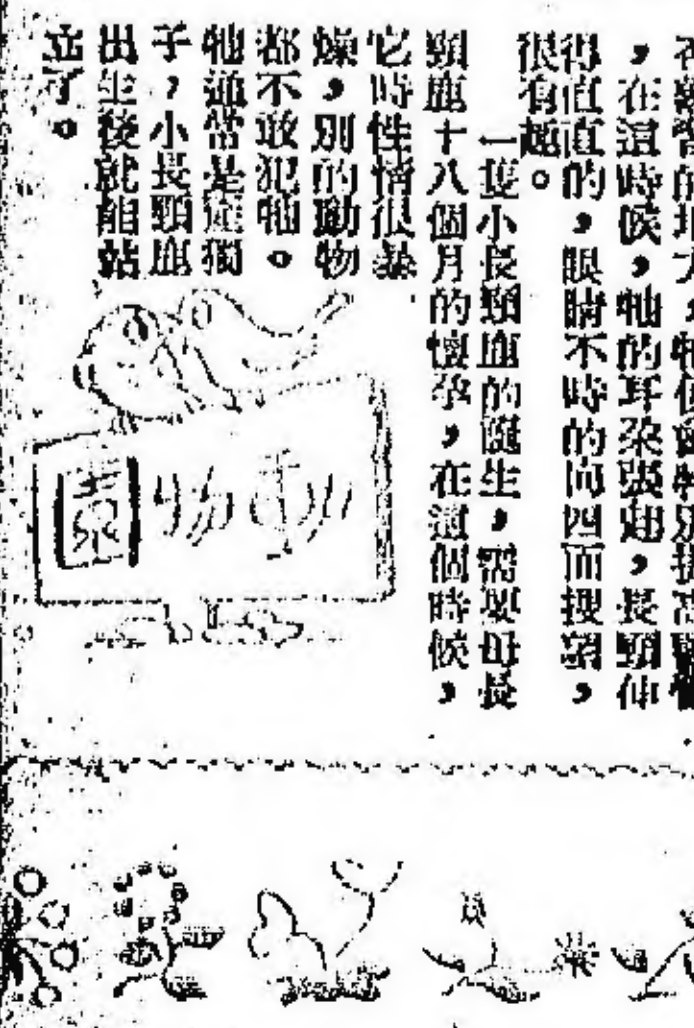 的地方，牠便會特別提高警
，在這時候，牠的耳朵張翹，長頸伸
得直直的，眼睛不時的向四面搜索，
很有趣。
一隻小長頸鹿的誕生，需要母長
頸鹿十八個月的懷孕，在這個時候，
它時性情很暴
燥，別的動物
都不敢犯牠。
牠通常是產獨
子，小長頸鹿
出生後就能站
立了。
動物園